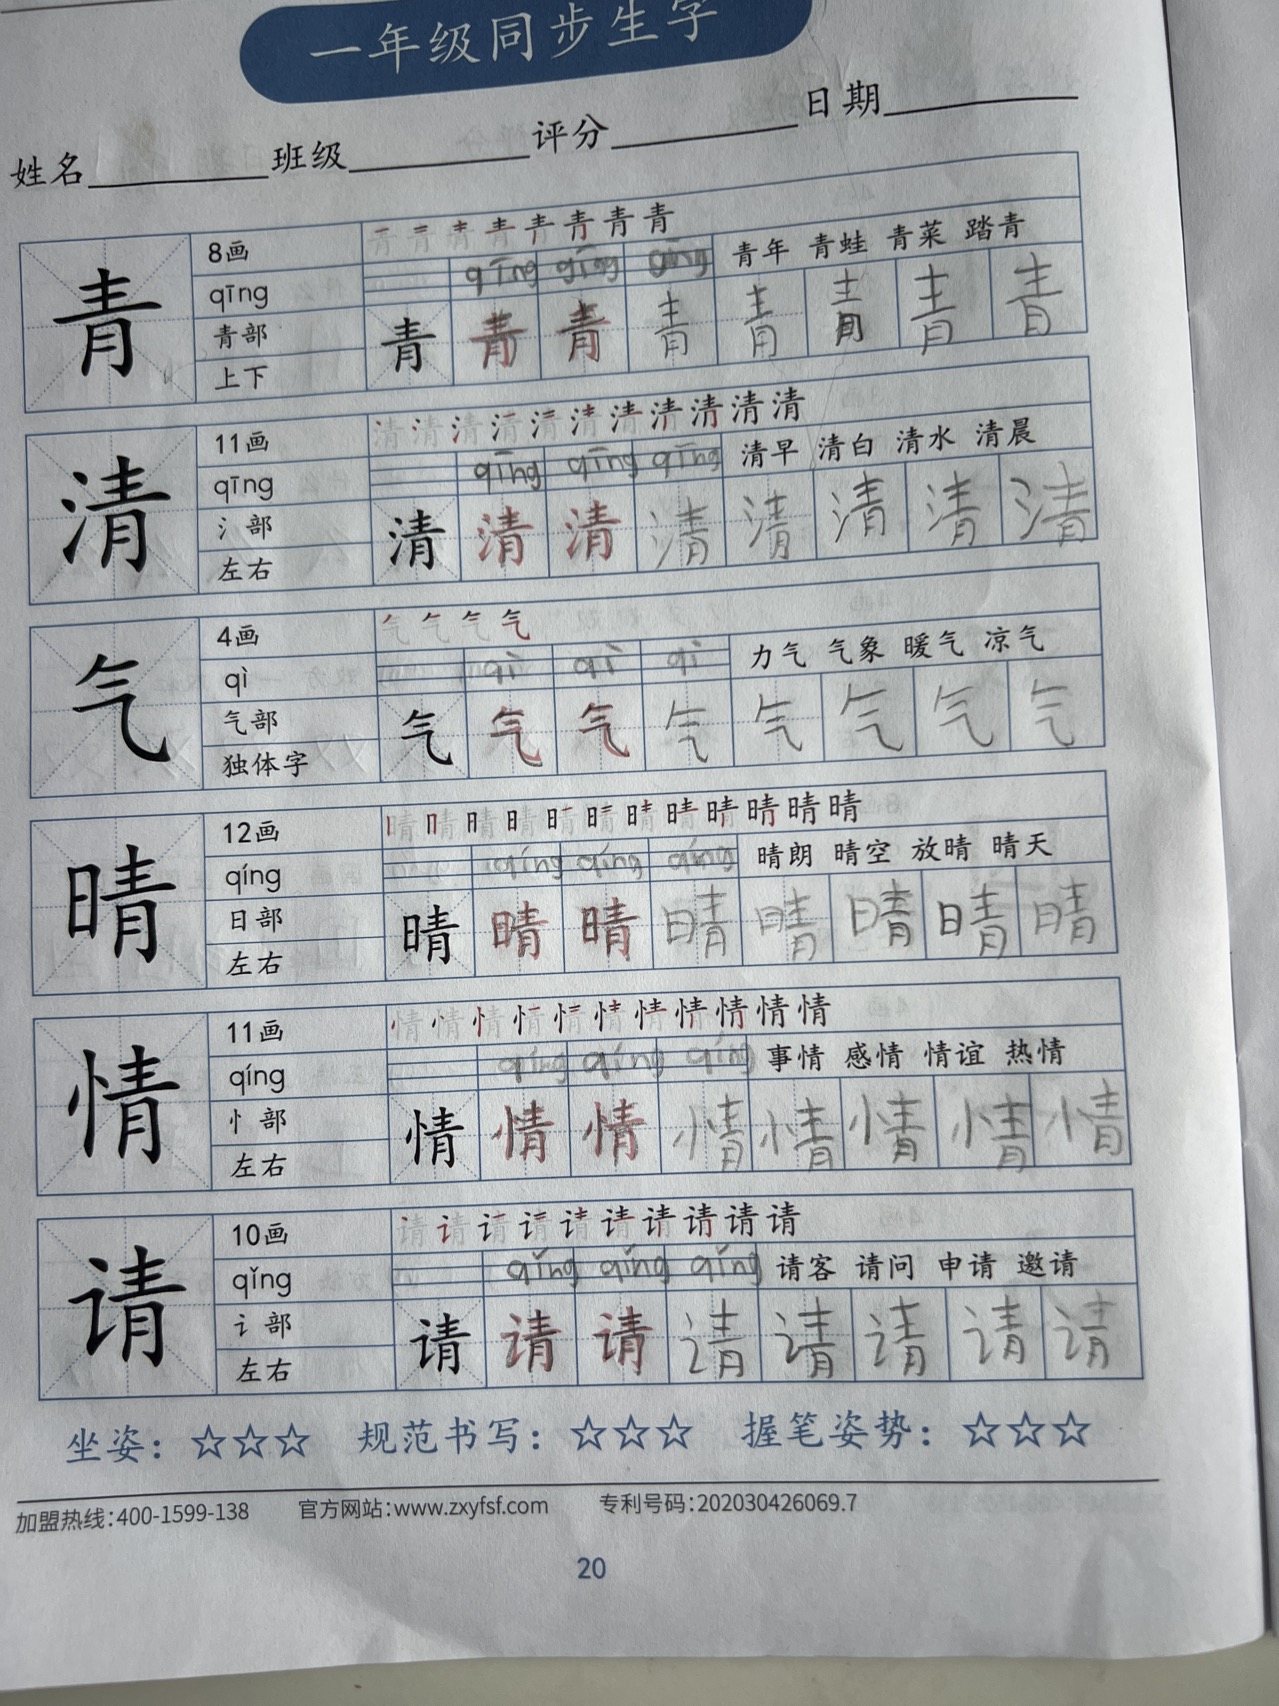 一年级同步生字
姓名 班级 评分 日期
青 8画 青 青 青 青 青 青 青 青
qīng qīng qīng qīng 青年 青蛙 青菜 踏青
青部 青 青 青 青 青 青 青 青
上下
清 11画 清 清 清 清 清 清 清 清 清 清 清
qīng qīng qīng qīng 清早 清白 清水 清晨
氵部 清 清 清 清 清 清 清 清
左右
气 4画 气 气 气 气
qì qì qì qì 力气 气象 暖气 凉气
气部 气 气 气 气 气 气 气 气
独体字
晴 12画 晴 晴 晴 晴 晴 晴 晴 晴 晴 晴 晴 晴
qíng qíng qíng qíng 晴朗 晴空 放晴 晴天
日部 晴 晴 晴 晴 晴 晴 晴 晴
左右
情 11画 情 情 情 情 情 情 情 情 情 情 情
qíng qíng qíng qíng 事情 感情 情谊 热情
忄部 情 情 情 情 情 情 情 情
左右
请 10画 请 请 请 请 请 请 请 请 请 请
qǐng qǐng qǐng qǐng 请客 请问 申请 邀请
讠部 请 请 请 请 请 请 请 请
左右
坐姿：☆☆☆ 规范书写：☆☆☆ 握笔姿势：☆☆☆
加盟热线：400-1599-138 官方网站：www.zxyfsf.com 专利号码：202030426069.7
20